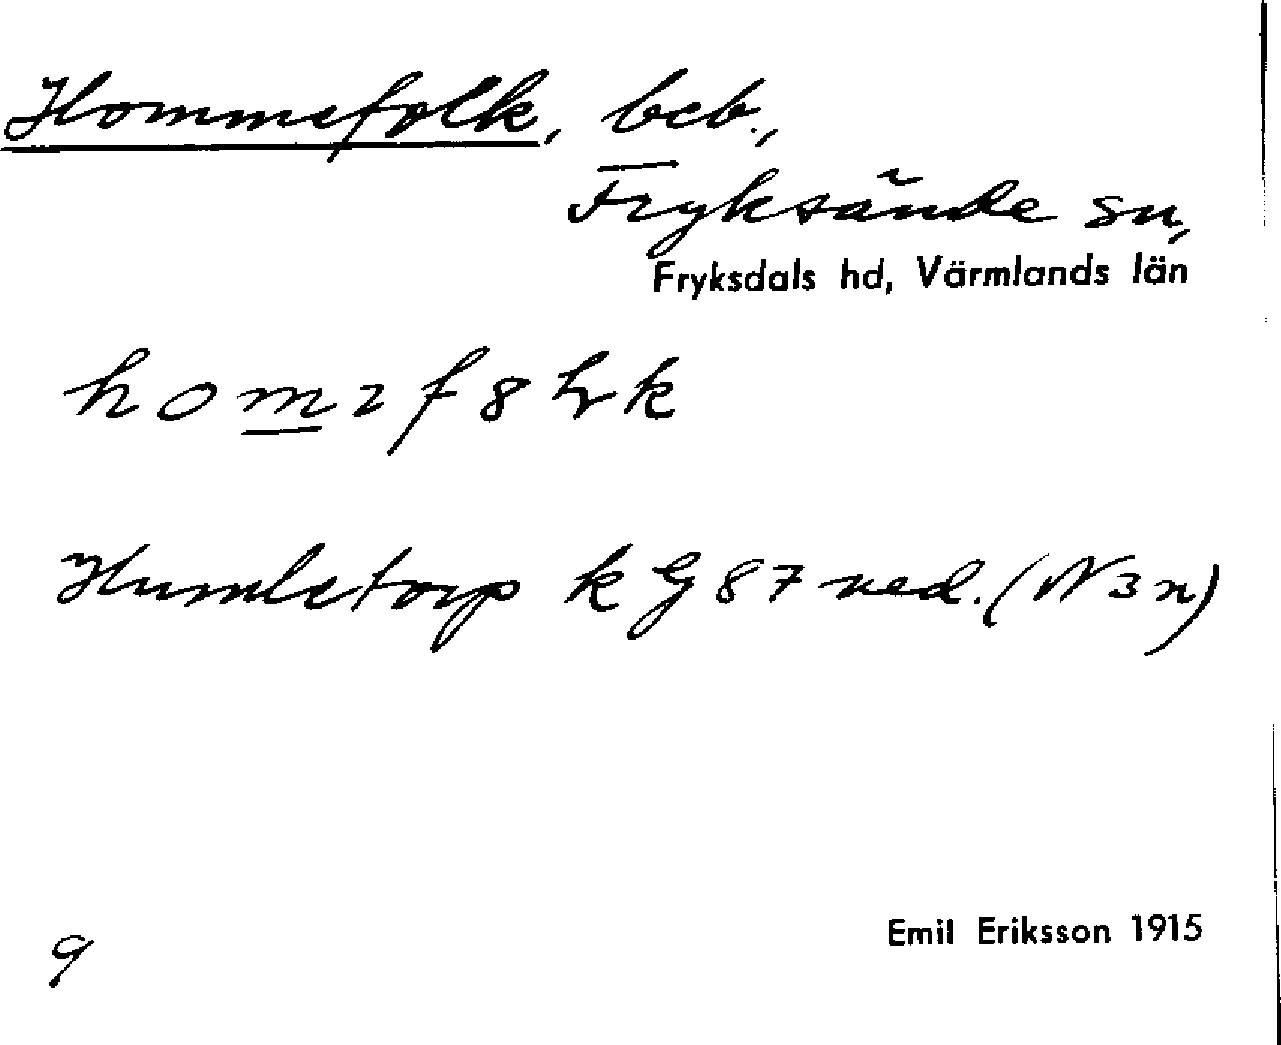 Hommefolk, beb.,
Fryksände sn,
Fryksdals hd, Värmlands län
Humletorp k G 87 ned. (N 3 n)
Emil Eriksson 1915
9